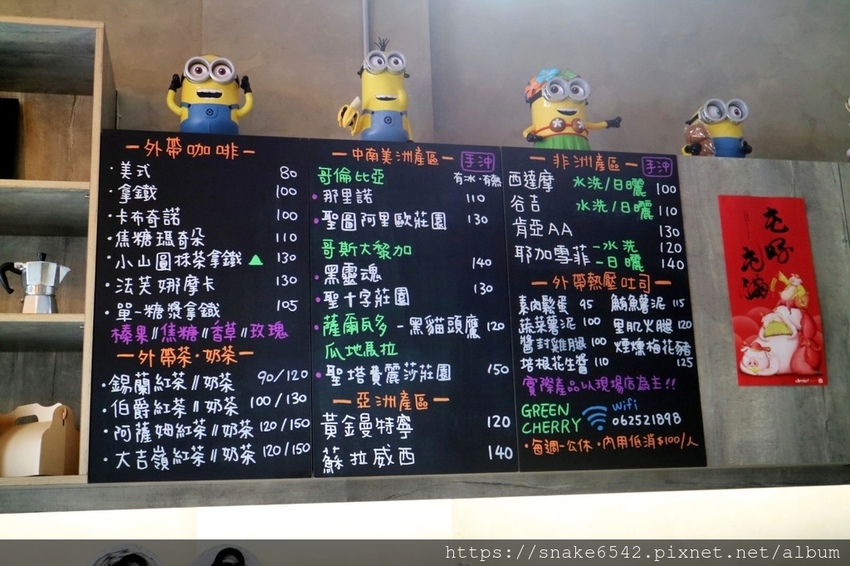 外帶咖啡
·美式 80
·拿鐵 100
·卡布奇諾 100
·焦糖瑪奇朵 110
·小山圓抹茶拿鐵▲ 130
·法芙娜摩卡 130
·單一糖漿拿鐵 105
榛果//焦糖//香草//玫瑰
外帶茶·奶茶
·錫蘭紅茶//奶茶 90/120
·伯爵紅茶//奶茶 100/130
·阿薩姆紅茶//奶茶 120/150
·大吉嶺紅茶//奶茶 120/150
中南美洲產區 手沖
哥倫比亞 有冰·有熱
·那里諾 110
·聖圖阿里歐莊園 130
哥斯大黎加
·黑靈魂 140
·聖十字莊園 130
·薩爾瓦多-黑貓頭鷹 120
瓜地馬拉
·聖塔費麗莎莊園 150
亞洲產區
黃金曼特寧 120
蘇拉威西 140
非洲產區 手沖
西達摩 水洗/日曬 100
谷吉 水洗/日曬 110
肯亞AA 130
耶加雪菲 -水洗 120
-日曬 140
外帶熱壓吐司
素肉鬆蛋 95 鮪魚薯泥 115
蔬菜薯泥 100 里肌火腿 120
醬封雞腿 100 煙燻梅花豬 125
培根花生醬 110
實際產品以現場店為主!!
GREEN CHERRY wifi 062521898
·每週一公休·內用低消$100/人
https://snake6542.pixnet.net/album